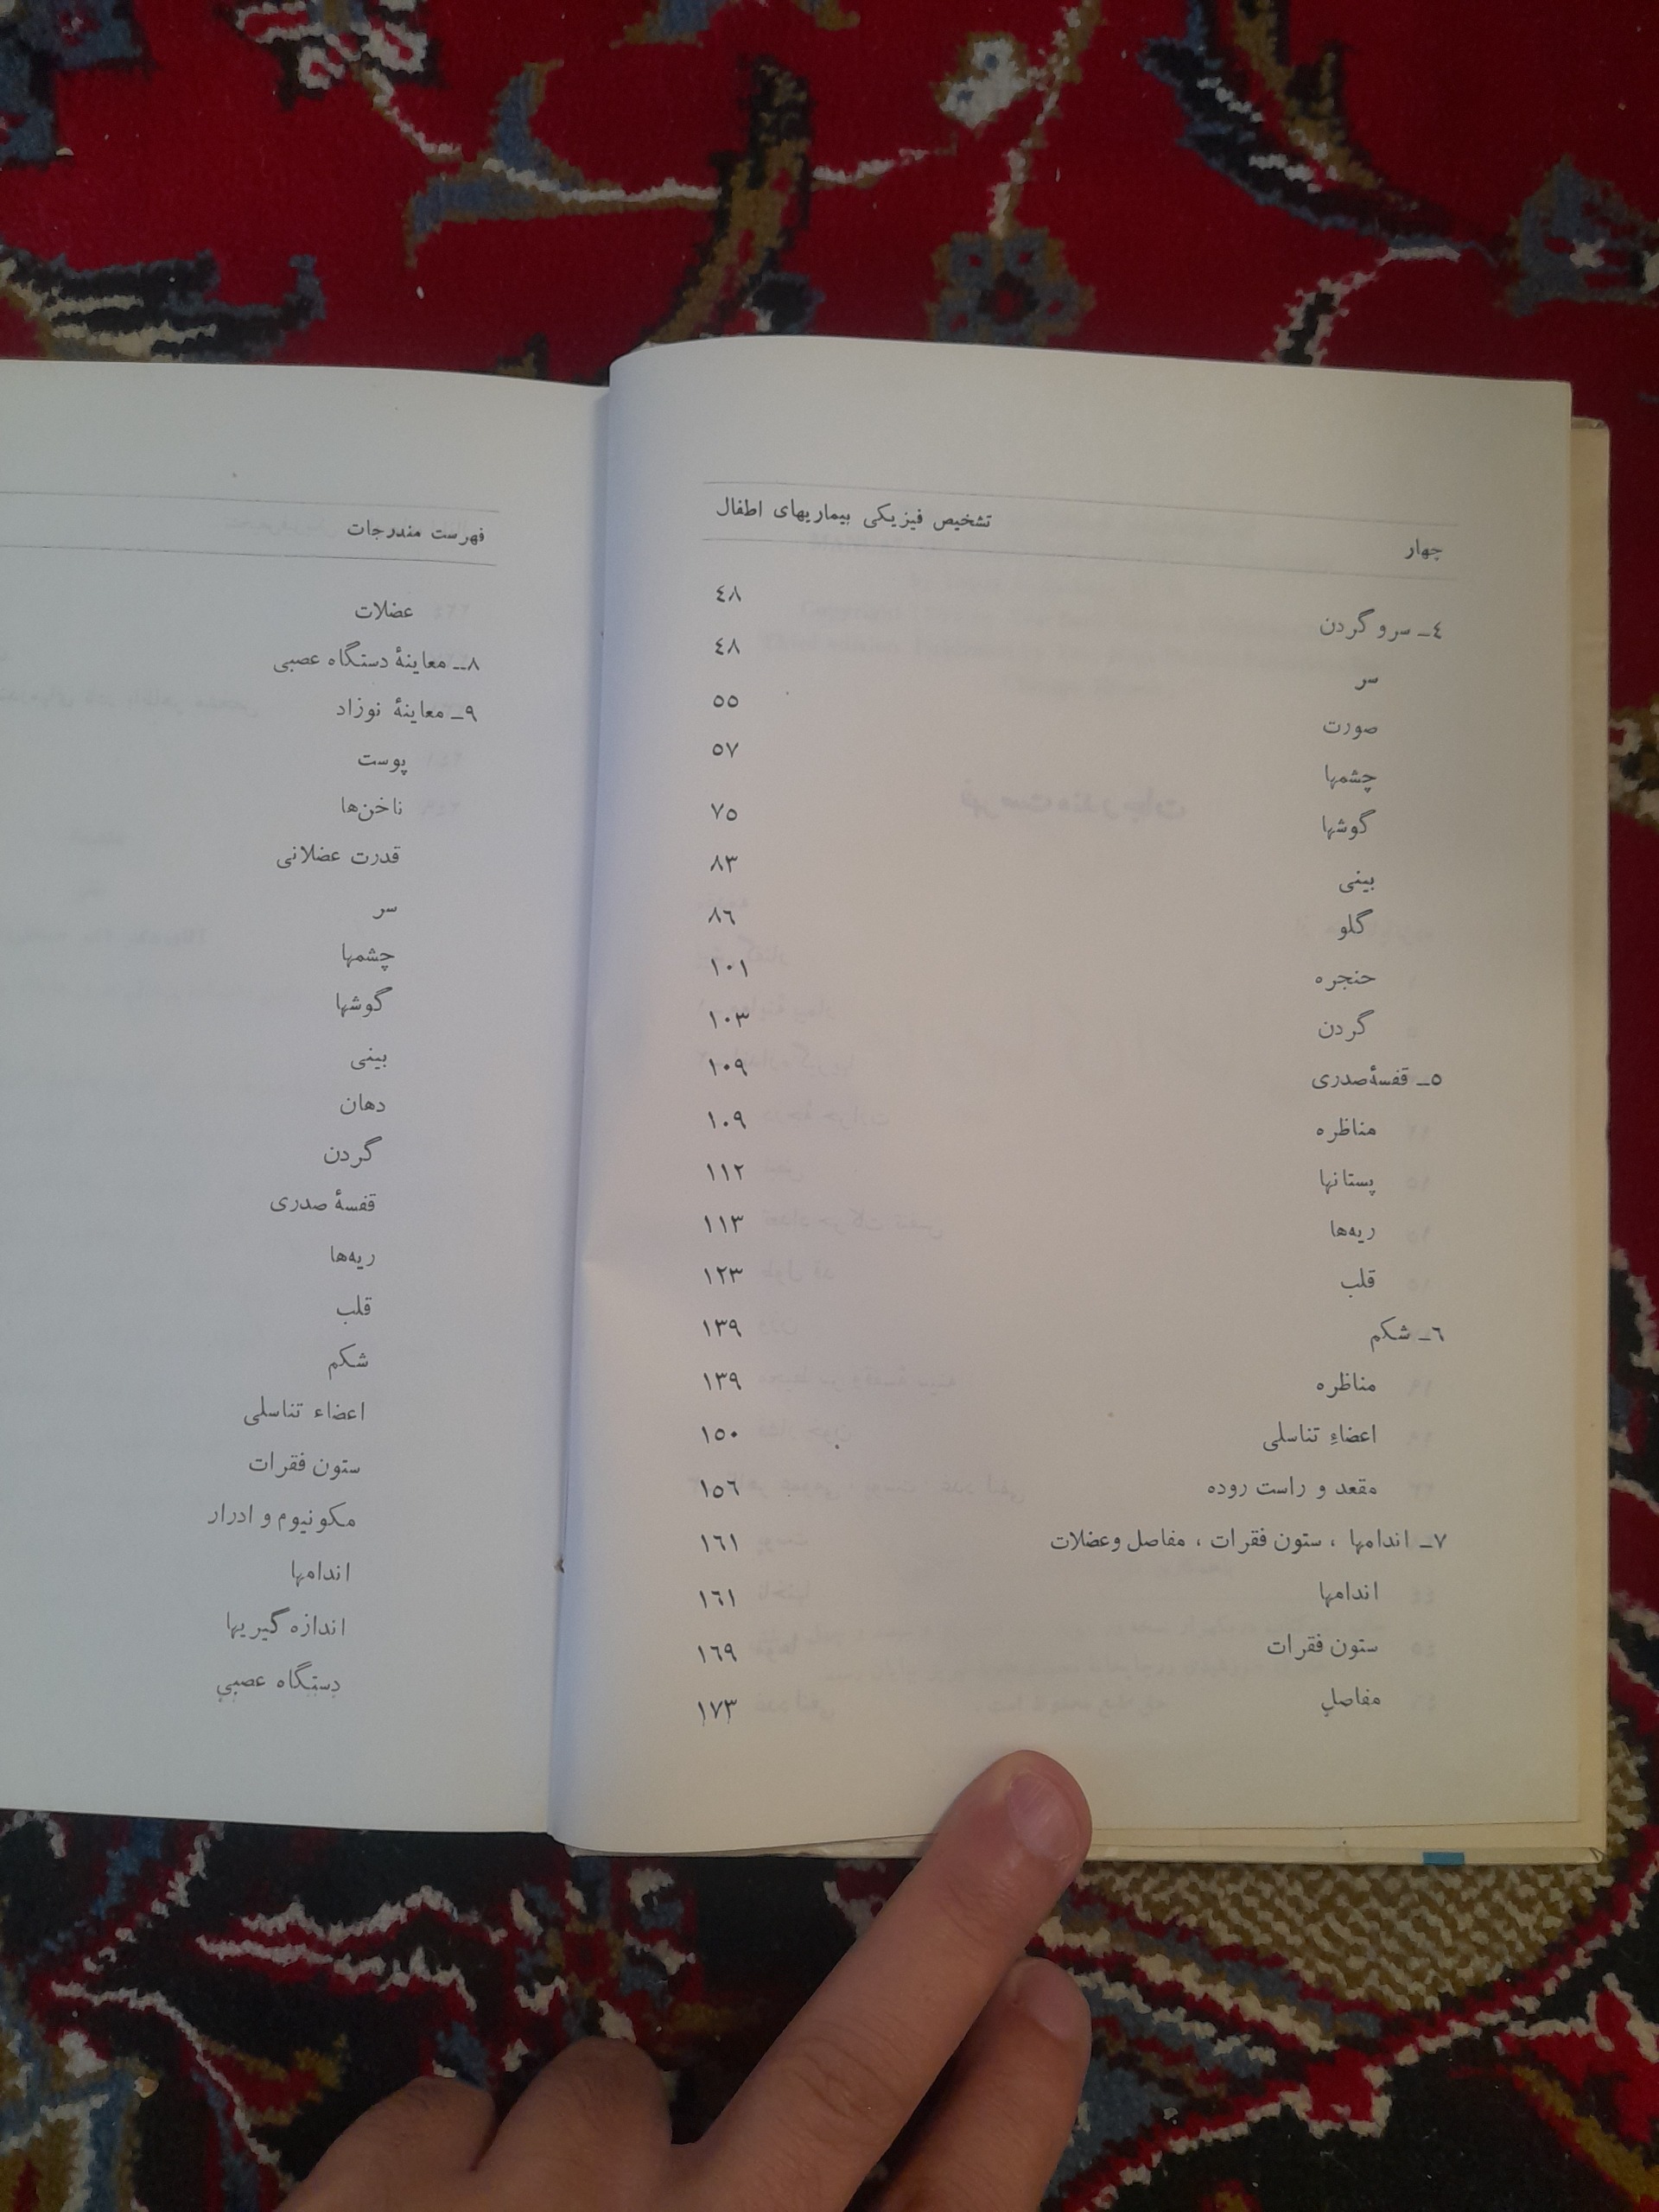 تشخیص فیزیکی بیماریهای اطفال
چهار
٤ــ سر و گردن ٤٨
سر ٤٨
صورت ٥٥
چشمها ٥٧
گوشها ٧٥
بینی ٨٣
گلو ٨٦
حنجره ١٠١
گردن ١٠٣
٥ــ قفسهٔ صدری ١٠٩
مناظره ١٠٩
پستانها ١١٢
ریه‌ها ١١٣
قلب ١٢٣
٦ــ شکم ١٣٩
مناظره ١٣٩
اعضاءِ تناسلی ١٥٠
مقعد و راست روده ١٥٦
٧ــ اندامها ، ستون فقرات ، مفاصل وعضلات ١٦١
اندامها ١٦١
ستون فقرات ١٦٩
مفاصل ١٧٣
فهرست مندرجات
عضلات
٨ــ معاینهٔ دستگاه عصبی
٩ــ معاینهٔ نوزاد
پوست
ناخن‌ها
قدرت عضلانی
سر
چشمها
گوشها
بینی
دهان
گردن
قفسهٔ صدری
ریه‌ها
قلب
شکم
اعضاء تناسلی
ستون فقرات
مکونیوم و ادرار
اندامها
اندازه گیریها
دستگاه عصبی